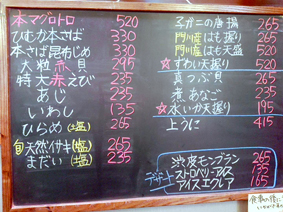 本マグロトロ 520
ひもカ本さば 330
本さば昆布じめ 330
大粒赤貝 235
特大赤えび 235
あじ 235
いわし 135
ひらめ(塩) 265
旬天然イサキ(塩) 265
まだい(塩) 235
子ガニの唐揚 265
門川産はも握り 265
門川産はも天盛 520
☆ずわい天握り 520
真つぶ貝 265
煮あなご 235
☆水いか天握り 195
上うに 415
デザート
渋皮モンブラン 265
ストロベリーアイス 135
アイスエクレア 165